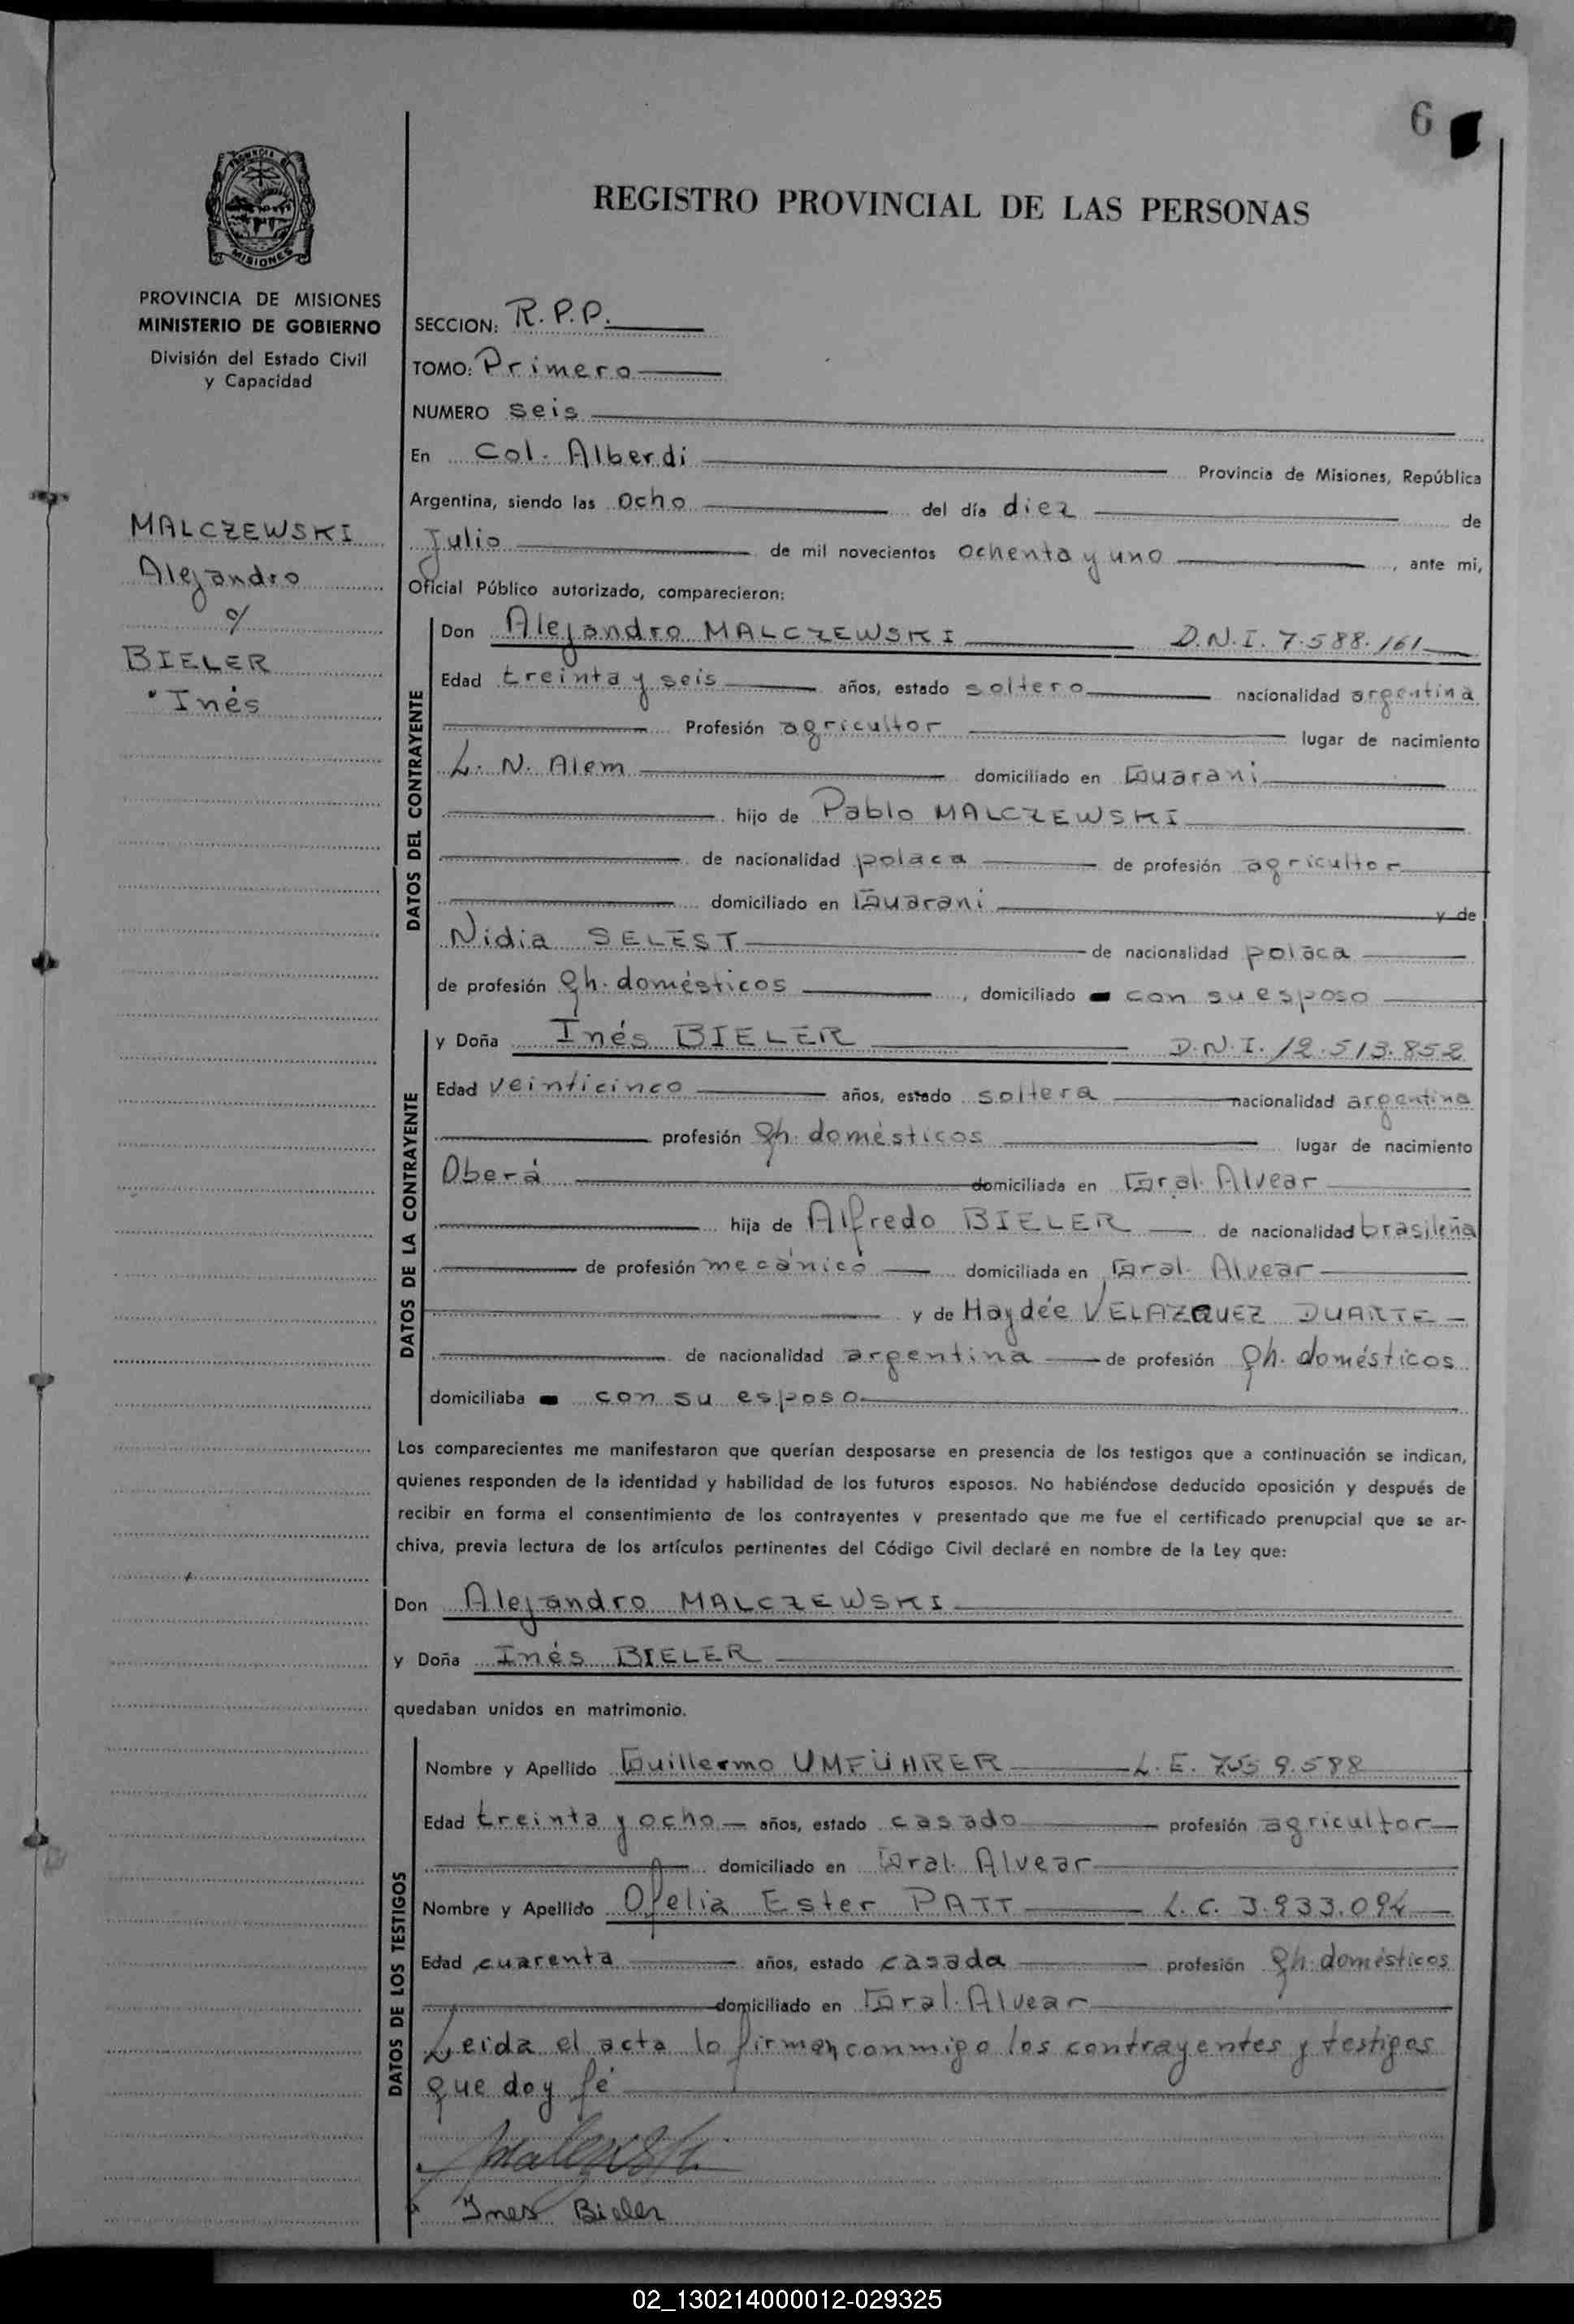 6
REGISTRO PROVINCIAL DE LAS PERSONAS
PROVINCIA DE MISIONES
MINISTERIO DE GOBIERNO
División del Estado Civil
y Capacidad
MALCZEWSKI
Alejandro
c/
BIELER
Inés
SECCION: R.P.P.
TOMO: Primero
NUMERO seis
En Col. Alberdi Provincia de Misiones, República
Argentina, siendo las ocho del día diez de
Julio de mil novecientos ochenta y uno, ante mi,
Oficial Público autorizado, comparecieron:
DATOS DEL CONTRAYENTE
Don Alejandro MALCZEWSKI D.N.I. 7.588.161
Edad treinta y seis años, estado soltero nacionalidad argentina
Profesión agricultor lugar de nacimiento
L. N. Alem domiciliado en Guarani
hijo de Pablo MALCZEWSKI
de nacionalidad polaca de profesión agricultor
domiciliado en Guarani y de
Nidia SELEST de nacionalidad polaca
de profesión qh. domésticos, domiciliado con su esposo
DATOS DE LA CONTRAYENTE
y Doña Inés BIELER D.N.I. 12.513.852
Edad veinticinco años, estado soltera nacionalidad argentina
profesión qh. domésticos lugar de nacimiento
Oberá domiciliada en Gral. Alvear
hija de Alfredo BIELER de nacionalidad brasileña
de profesión mecánico domiciliada en Gral. Alvear
y de Haydée VELAZQUEZ DUARTE
de nacionalidad argentina de profesión qh. domésticos
domiciliaba con su esposo
Los comparecientes me manifestaron que querían desposarse en presencia de los testigos que a continuación se indican,
quienes responden de la identidad y habilidad de los futuros esposos. No habiéndose deducido oposición y después de
recibir en forma el consentimiento de los contrayentes y presentado que me fue el certificado prenupcial que se ar-
chiva, previa lectura de los artículos pertinentes del Código Civil declaré en nombre de la Ley que:
Don Alejandro MALCZEWSKI
y Doña Inés BIELER
quedaban unidos en matrimonio.
DATOS DE LOS TESTIGOS
Nombre y Apellido Guillermo UMFÜHRER L.E. 9.588
Edad treinta y ocho años, estado casado profesión agricultor
domiciliado en Gral. Alvear
Nombre y Apellido Ofelia Ester PATT L.C. 3.933.094
Edad cuarenta años, estado casada profesión qh. domésticos
domiciliado en Gral. Alvear
Leida el acta lo firman conmigo los contrayentes y testigos
que doy fé
Ines Bieler
02_130214000012-029325